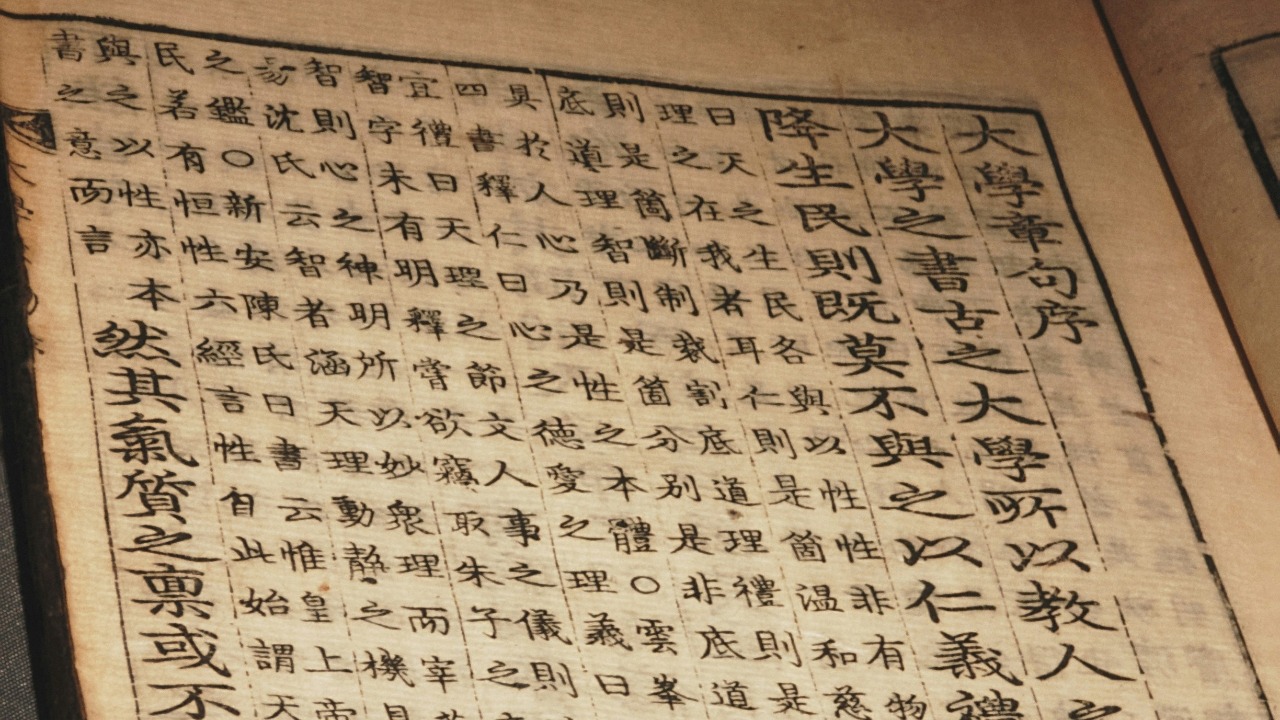 大學章句序
大學之書古之大學所以教人之
降生民則既莫不與之以仁義禮
曰天之生民各與以性性非有物
理之在我者耳仁則是箇温和慈
則是箇斷制裁割底道理禮則是
底道理智則是箇分別是非底道
具於人心乃是性之本體○雲峯
四書釋仁曰心之德愛之理義曰
宜禮曰天理之節文人事之儀則
智字未有明釋嘗欲竊取朱子之
智則心之神明所以妙衆理而宰
易沈氏云智者涵天理動靜之機具
之鑑○新安陳氏曰書云惟皇上帝
民若有恒性六經言性自此始謂天
與之以性亦本
書之意而言
然其氣質之禀或不